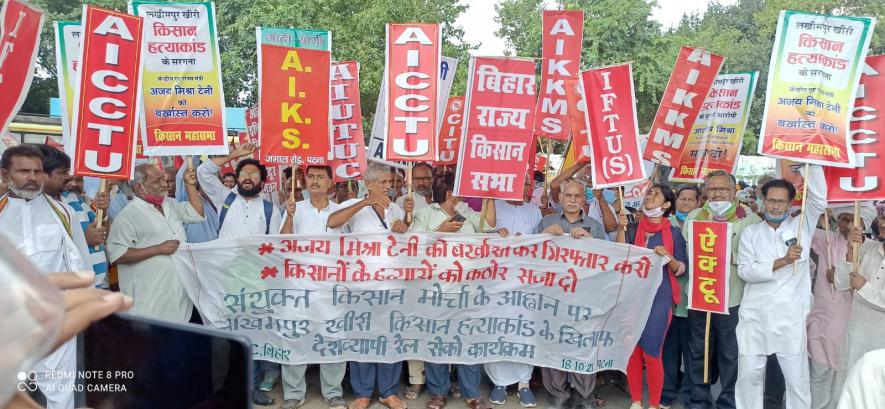 AICCTU
लखीमपुर खीरी
किसान
हत्याकांड
के सरगना
केन्द्रीय गृह राज्य मंत्री
अजय मिश्रा टेनी
को
बर्खास्त करो!
किसान महासभा
A.I.K.S.
जमाल रोड, पटना
AITUC
AICCTU
CITU
बिहार
राज्य
किसान
सभा
AIKKMS
IFTU(S)
AIKKMS
किसान
हत्याकांड
अजय मिश्रा
लखीमपुर खीरी
किसान
हत्याकांड
के सरगना
केन्द्रीय गृह राज्य मंत्री
अजय मिश्रा टेनी
को
बर्खास्त करो!
किसान महासभा
ऐक्टू
* अजय मिश्रा टेनी को बर्खास्त कर गिरफ्तार करो
* किसानों के हत्यारों को कठोर सजा दो
संयुक्त किसान मोर्चा के आह्वान पर
खीरी किसान हत्याकांड के खिलाफ
देशव्यापी रेल रोको कार्यक्रम
बिहार
REDMI NOTE 8 PRO
AI QUAD CAMERA